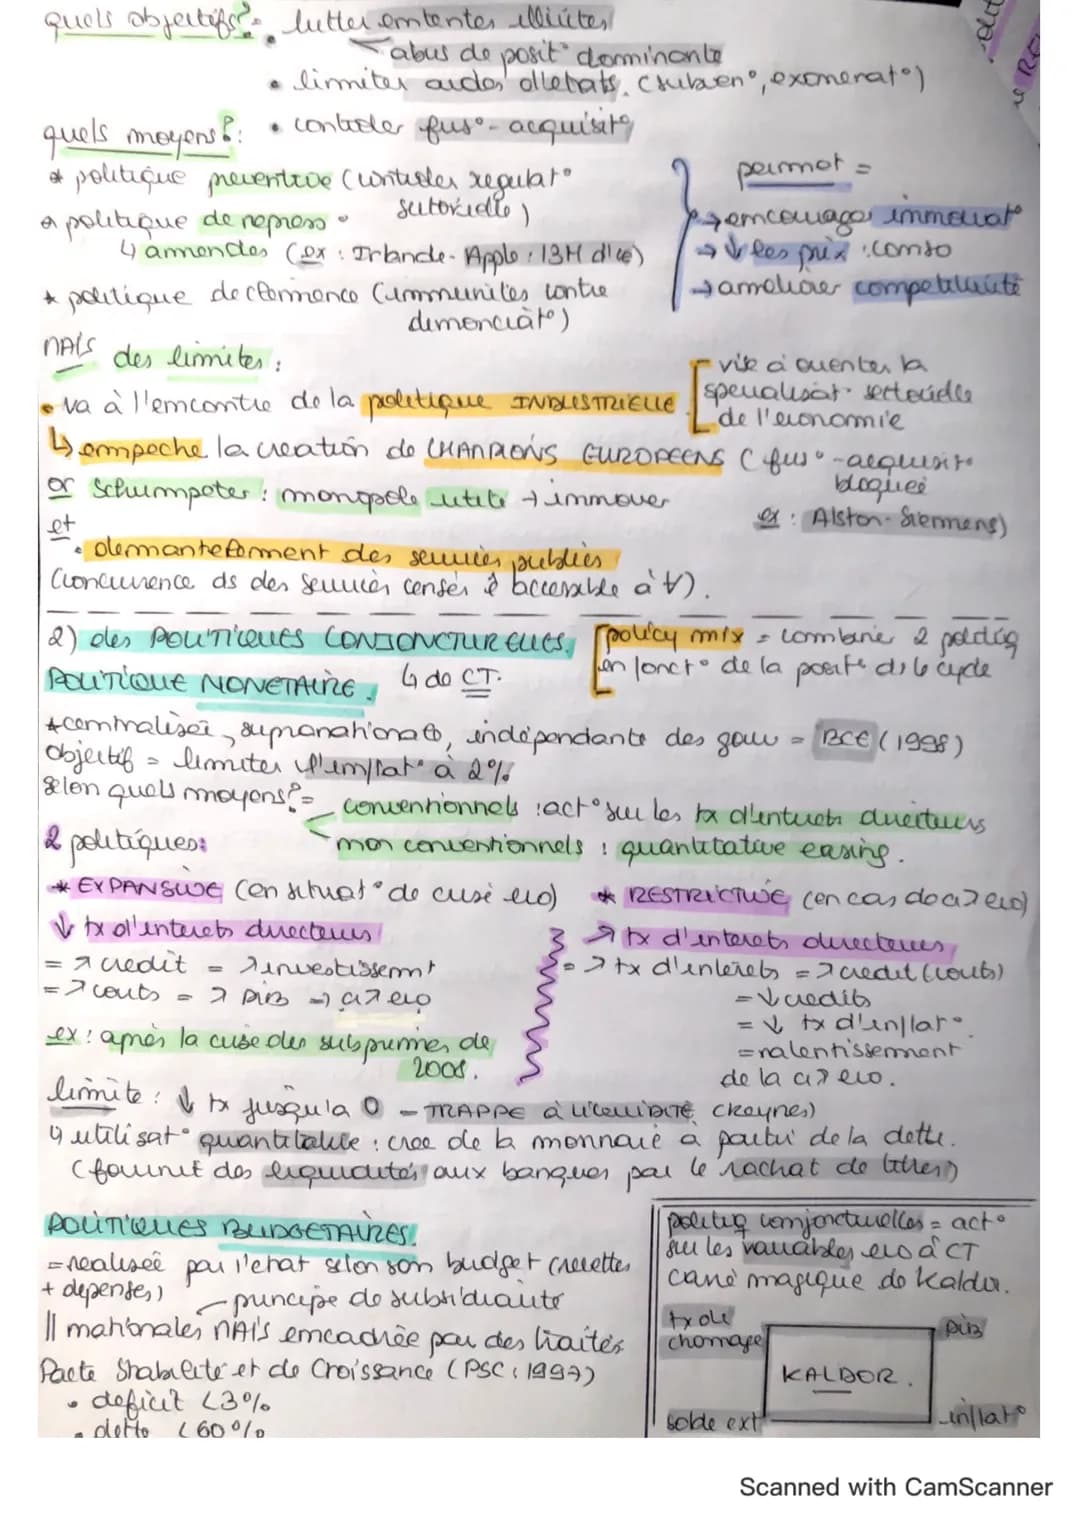 quels objectifs? = • lutter ententes illicites
abus de posit° dominante
• limiter aides d'etats. (subven°, exonerat°)
quels moyens?: • controler fus°-acquisit°
* politique preventive (controler regulat° sectorielle)
* politique de repress°
↳ amendes (ex : Irlande - Apple : 13M d'€)
* politique de clemence (immunités contre denonciat°)
permet =
→ encourager innovat°
→ ↓ les prix conso
→ ameliorer competitivité
MAIS des limites :
• va à l'encontre de la politique INDUSTRIELLE
vise à orienter la
specialisat° sectorielle
de l'economie
↳ empeche la creation de CHAMPIONS EUROPEENS (fus°-acquisit° bloquée
ex : Alston-Siemens)
or Schumpeter : monopole utile → innover
et
• demantelement des services publics
(concurrence ds des services censés ê accessible à ∀).
2) des POLITIQUES CONJONCTURELLES.
↳ de CT.
policy mix = combiner 2 politiq
en fonct° de la posit° ds le cycle
POLITIQUE MONETAIRE.
* centralisée, supranationale, indépendante des gouv = BCE (1998)
Objectif = limiter l'inflat° à 2%
Selon quels moyens? = conventionnels : act° sur les tx d'interets directeurs
non conventionnels : quantitative easing.
2 politiques:
* EXPANSIVE (en situat° de crise eco)
↓ tx d'interets directeurs
= ↗ credit = ↗ investissemnt
= ↗ couts = ↗ PIB → a↗ eco
ex : après la crise des subprimes de
2008.
* RESTRICTIVE (en cas de a↗ eco)
↗ tx d'interets directeurs
= ↗ tx d'interets = ↗ credit (couts)
= ↓ credits
= ↓ tx d'inflat°
= ralentissement
de la a↗ eco.
limite : ↓ tx jusqu'a 0 - TRAPPE à LIQUIDITÉ (Keynes)
↳ utilisat° quantitative : cree de la monnaie a partir de la dette.
(fournit des liquidités aux banques par le rachat de titres)
POLITIQUES BUDGETAIRES.
= realisée par l'etat selon son budget (recettes
+ depenses)
- principe de subsidiarité
|| nationales MAIS encadrée par des traités
Pacte Stabilité et de Croissance (PSC : 1997)
• deficit <3%
• dette <60%
politiq conjoncturelles = act°
sur les variables eco à CT
carré magique de Kaldor.
tx de
chomage
PIB
KALDOR.
solde ext
inflat°
Scanned with CamScanner